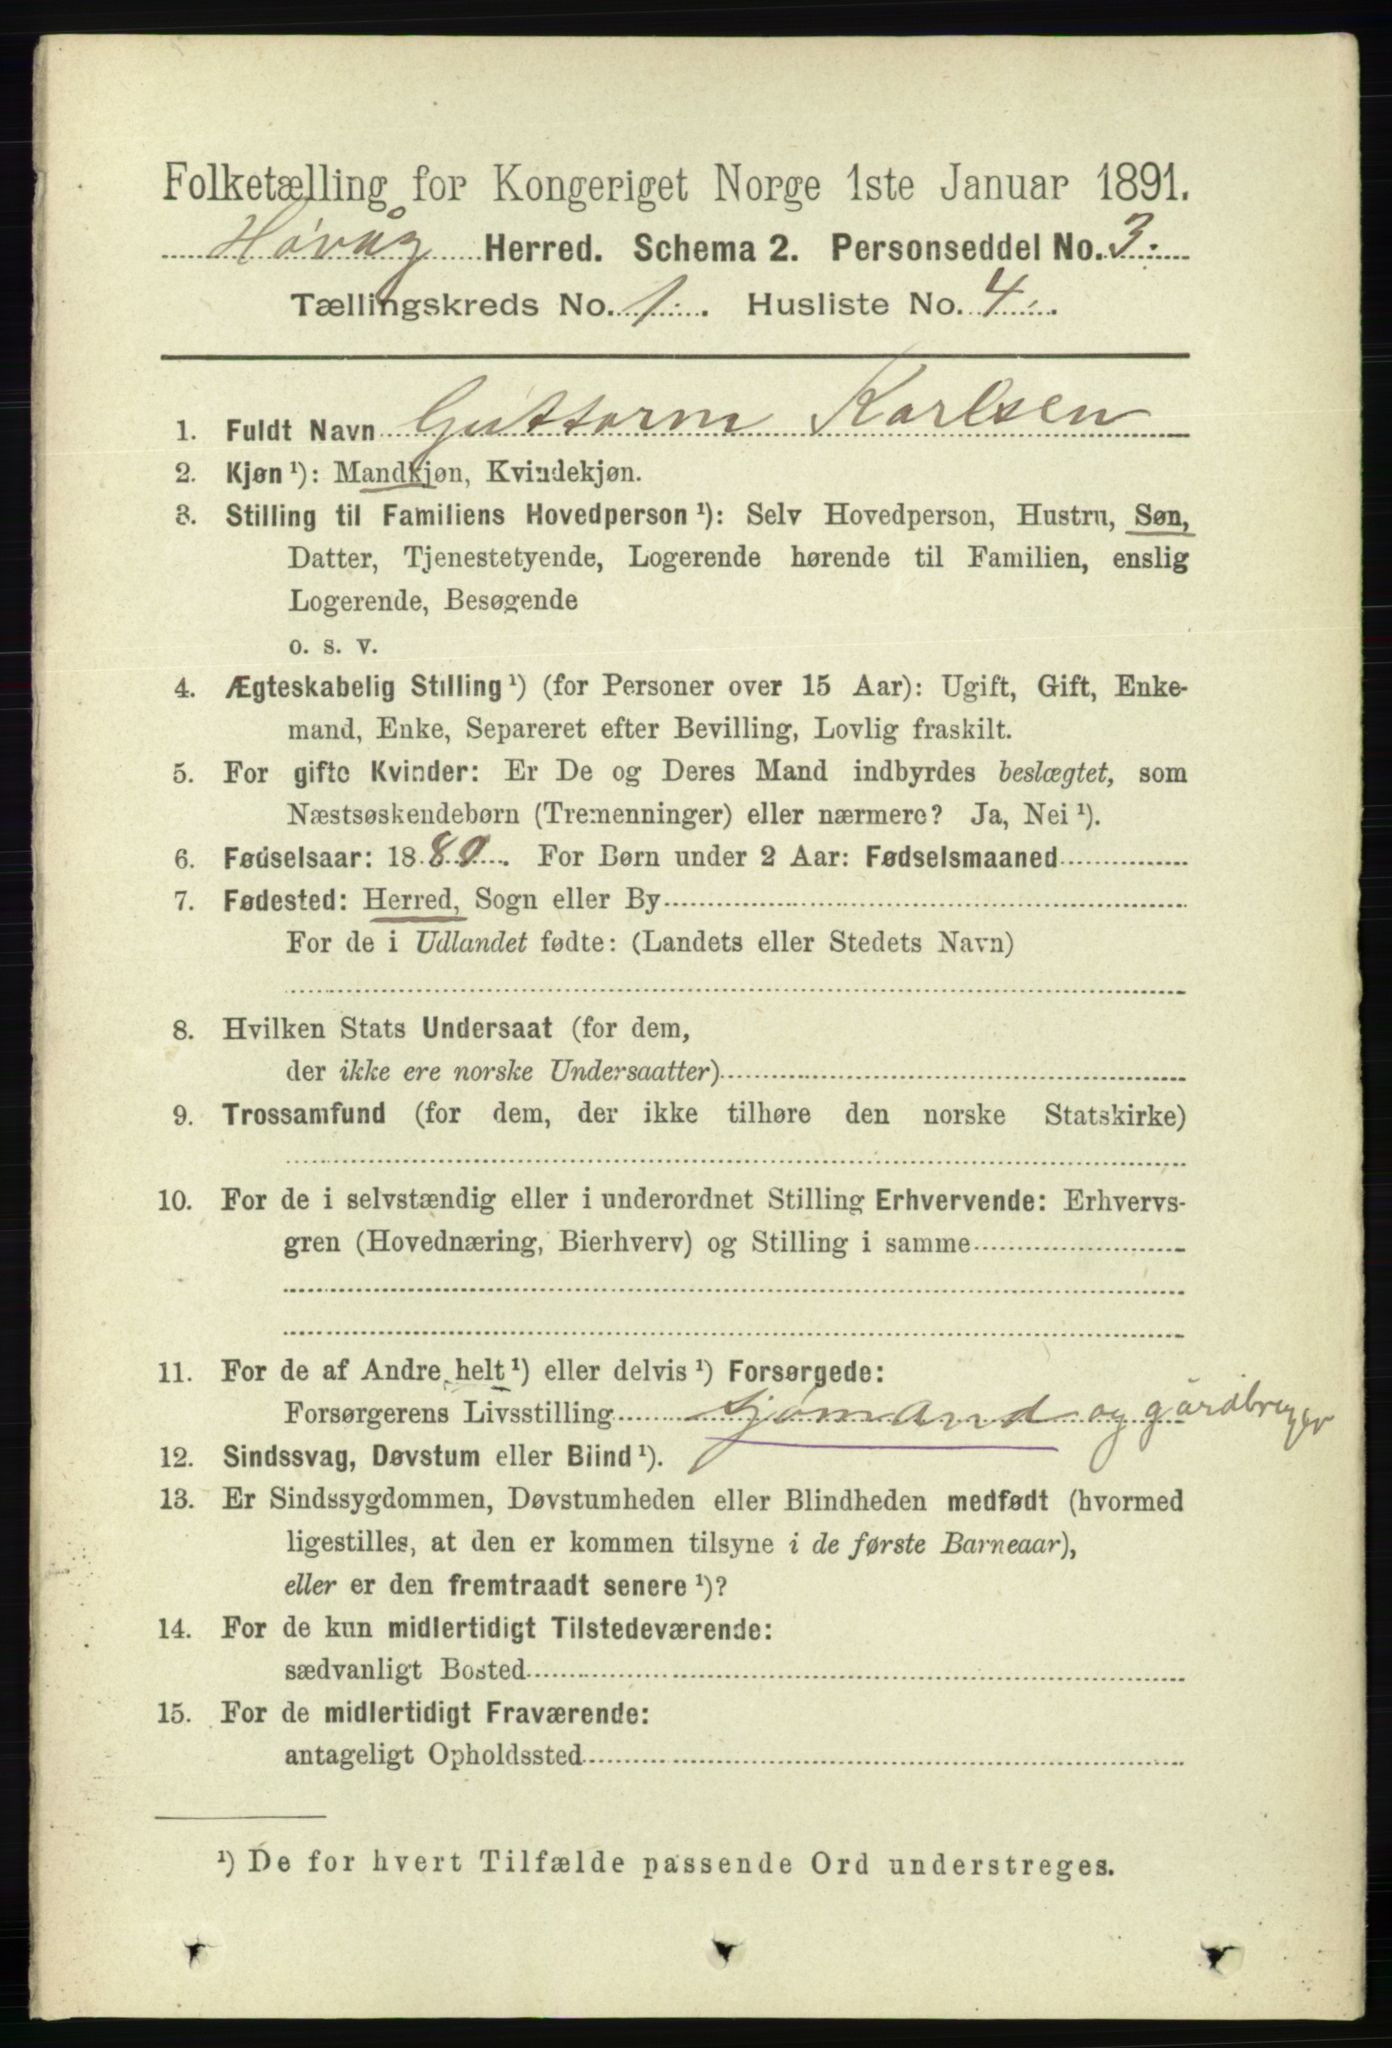 Folketælling for Kongeriget Norge 1ste Januar 1891.
Høvåg Herred. Schema 2. Personseddel No. 3.
Tællingskreds No. 1. Husliste No. 4.
1. Fuldt Navn Guttorm Karlsen
2. Kjøn¹): Mandkjøn, Kvindekjøn.
3. Stilling til Familiens Hovedperson¹): Selv Hovedperson, Hustru, Søn,
Datter, Tjenestetyende, Logerende hørende til Familien, enslig
Logerende, Besøgende
o. s. v.
4. Ægteskabelig Stilling¹) (for Personer over 15 Aar): Ugift, Gift, Enke-
mand, Enke, Separeret efter Bevilling, Lovlig fraskilt.
5. For gifte Kvinder: Er De og Deres Mand indbyrdes beslægtet, som
Næstsøskendebørn (Tremenninger) eller nærmere? Ja, Nei¹).
6. Fødselsaar: 1880. For Børn under 2 Aar: Fødselsmaaned
7. Fødested: Herred, Sogn eller By
For de i Udlandet fødte: (Landets eller Stedets Navn)
8. Hvilken Stats Undersaat (for dem,
der ikke ere norske Undersaatter)
9. Trossamfund (for dem, der ikke tilhøre den norske Statskirke)
10. For de i selvstændig eller i underordnet Stilling Erhvervende: Erhvervs-
gren (Hovednæring, Bierhverv) og Stilling i samme
11. For de af Andre helt¹) eller delvis¹) Forsørgede:
Forsørgerens Livsstilling Sjømand og gårdbruger
12. Sindssvag, Døvstum eller Blind¹).
13. Er Sindssygdommen, Døvstumheden eller Blindheden medfødt (hvormed
ligestilles, at den er kommen tilsyne i de første Barneaar),
eller er den fremtraadt senere¹)?
14. For de kun midlertidigt Tilstedeværende:
sædvanligt Bosted
15. For de midlertidigt Fraværende:
antageligt Opholdssted
¹) De for hvert Tilfælde passende Ord understreges.